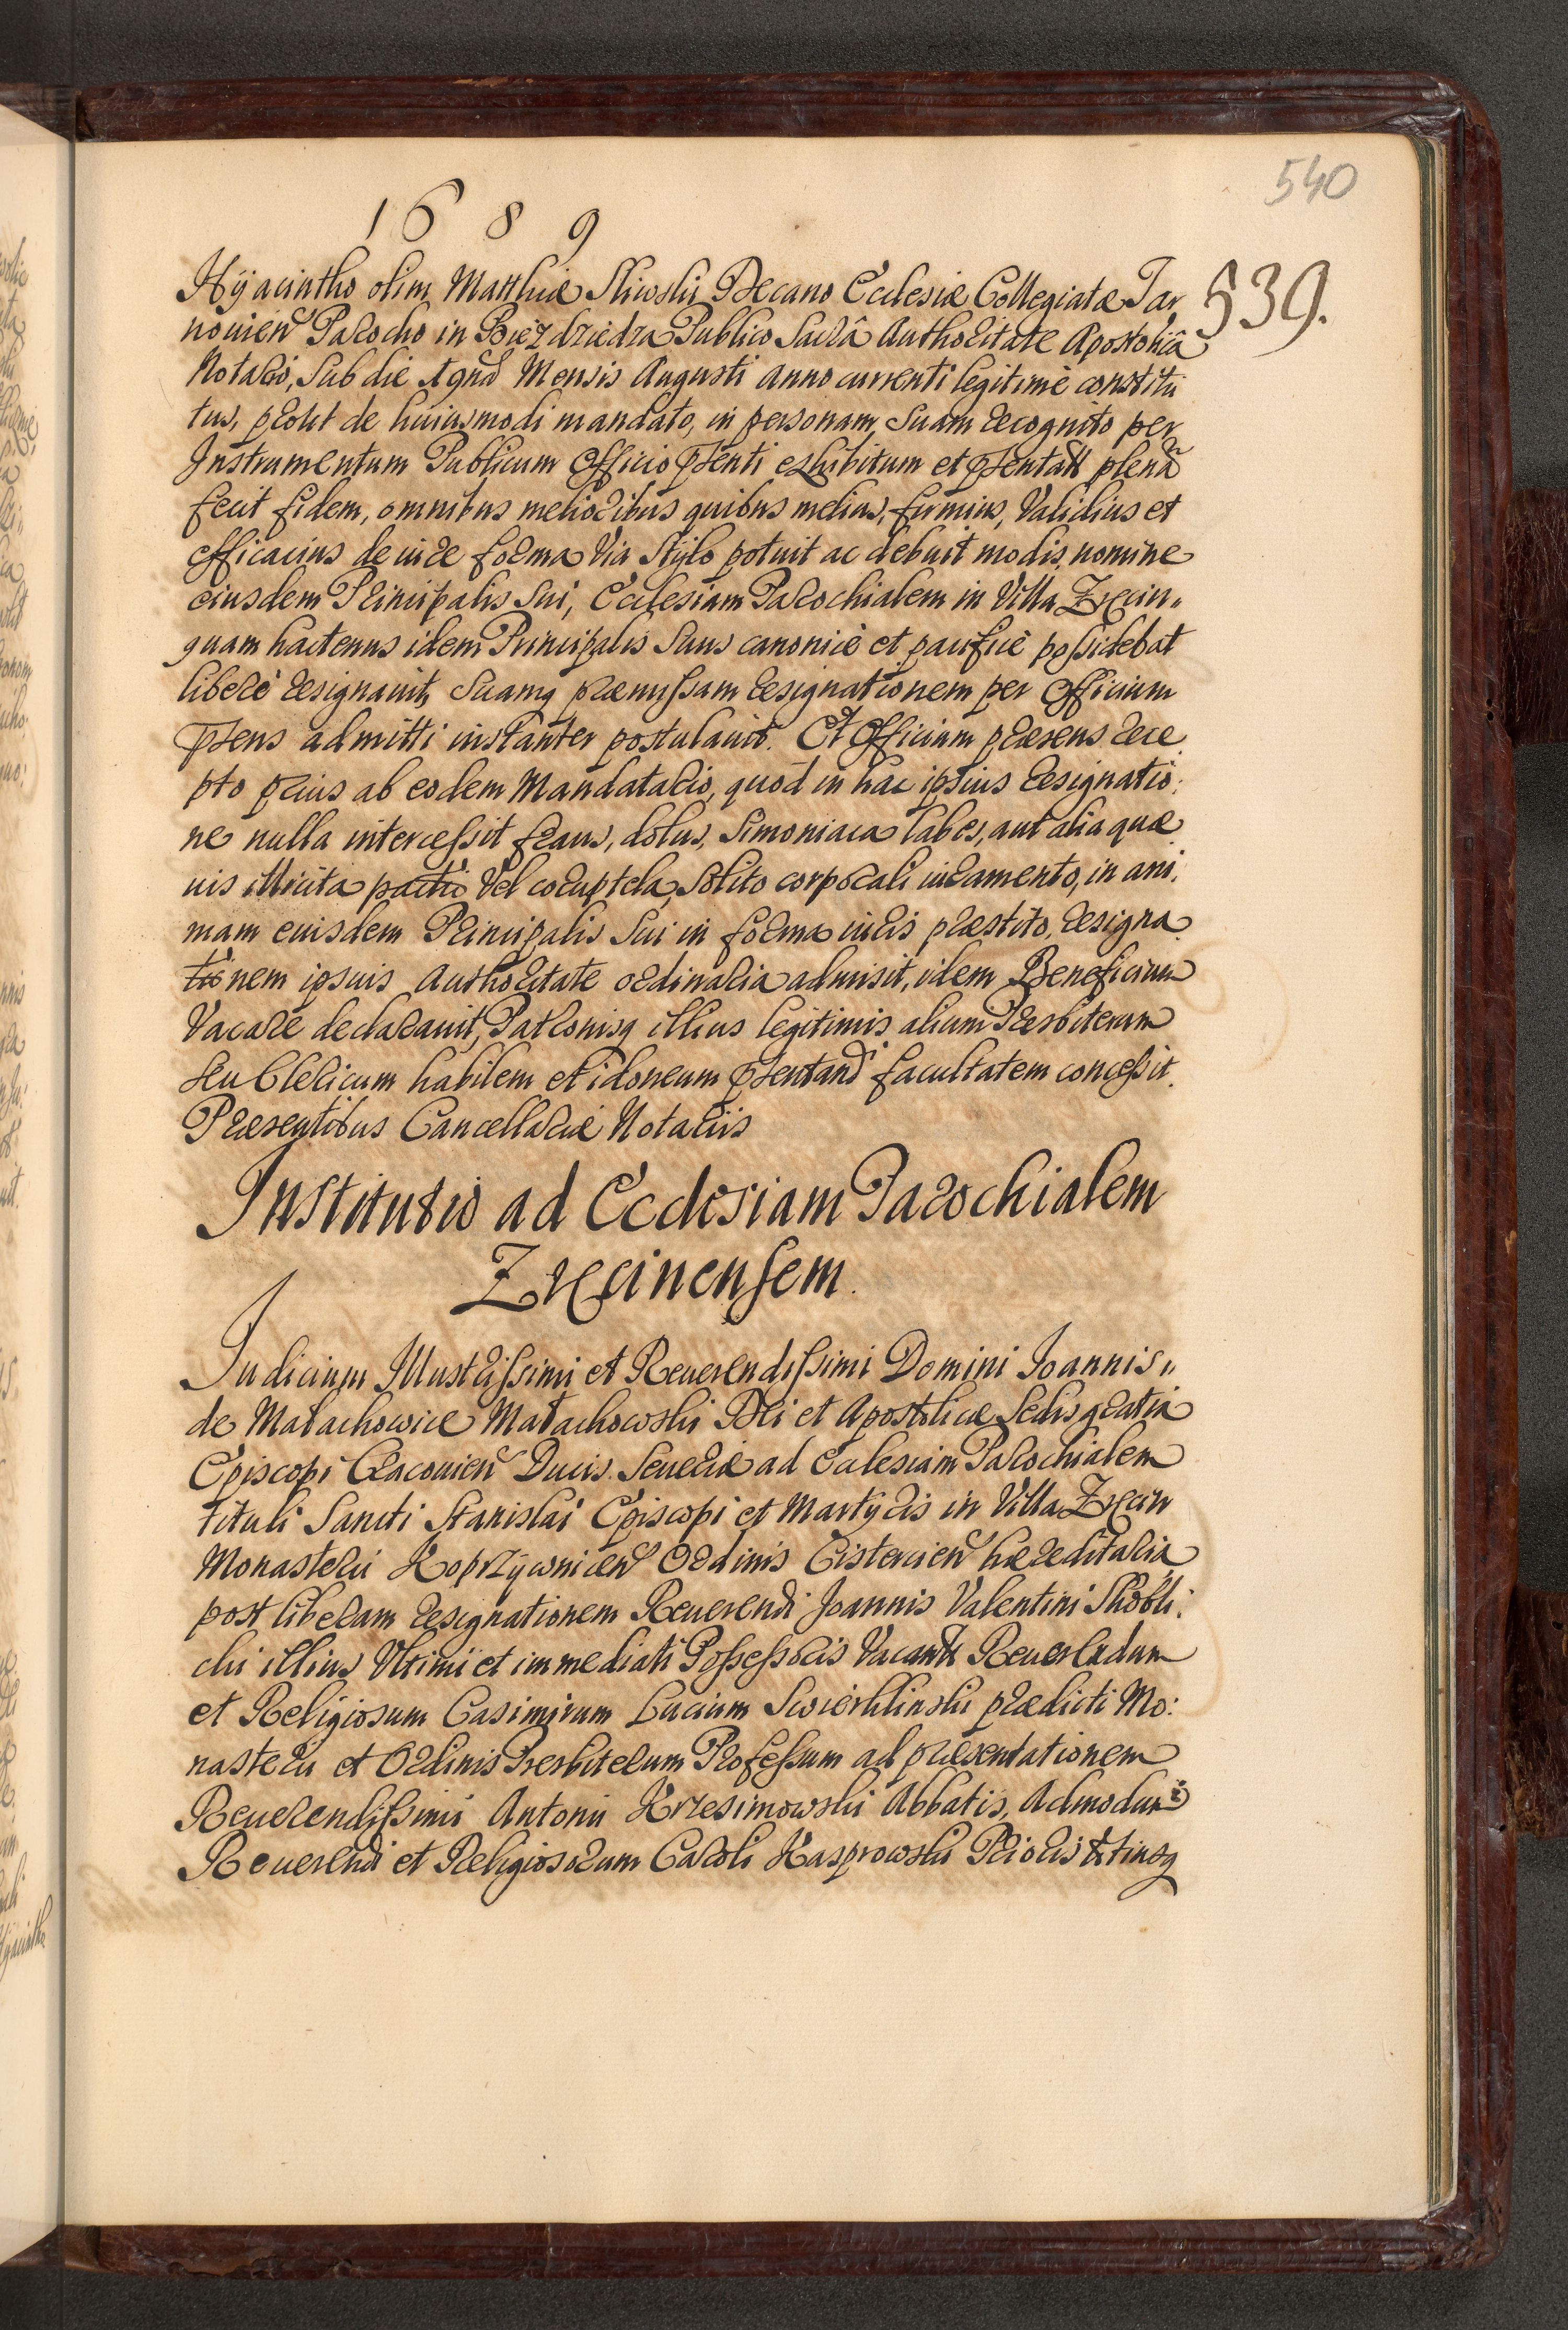 540
1689
539.
Hÿacintho olim Matthiæ Sliwski Decano Ecclesiæ Collegiatæ Tar,
nouien Parocho in Bieździedza Publico Sacrâ Authoritate Apostolicâ
Notario, Sub die Mensis Augusti Anno currenti legitimè constitu
tus, prout de huiusmodi mandato, in personam Suam recognito per
Instrumentum Publicum Officio pnti exhibitum et pntatt plenã
fecit fidem, omnibus melioribus quibus melius, firmius, Validius et
efficacius de iure forma Via Stÿlo potuit ac debuit modis, nomine
eiusdem Principalis Sui, Ecclesiam Parochialem in Villa Zręcin„
quam hactenus idem Principalis Suus canonicè et pacificè possidebat
liberè resignauit, Suamq præmissam resignationem per Officium
pns admitti instanter postulauit. Et Officium præsens rece
pto prius ab eodem Mandatario, quòd in hac ipsius resignatio:
ne nulla intercessit fraus, dolus, Simoniaca labes, aut alia quæ
uis illicita pactio Vel coruptela, Solito corporali iuramento, in ani:
mam euisdem Principalis Sui in forma iuris præstito, resigna
tionem ipsuis Authoritate ordinaria admisit, idem Beneficium
Vacare declarauit, Patronisq illius legitimis alium Presbiterum
seu Clericum habilem et idoneum pntandi facultatem concessit.
Præsentibus Cancellariæ Notariis
Institutio ad Ecclesiam Parochialem
Zręcinensem.
Iudicium Illustrissimi et Reuerendissimi Domini Ioannis„
de Małachowice Małachowski Dei et Apostolicæ Sedis gratia
Episcopi Cracouien Ducis Seueriæ ad Ecclesiam Parochialem
tituli Sancti Stanislai Episcopi et Martÿris in Villa Zręcin
Monasterii Koprzÿwnicen Ordinis Cistercien hæreditaria
post liberam resignationem Reuerendi Joannis Valentini Skobli:
cki illius Vltimi et immediati Possessoris Vacante Reuerendum
et Religiosum Casimirum Lucium Swierklinski prædicti Mo:
nasterii et Ordinis Presbiterum Professum ad præsentationem
Reuerendissimi Antonii Krzesimowski Abbatis, Admodum
Reuerendi et Religiosorum Caroli Kasprowski Prioris totiusq